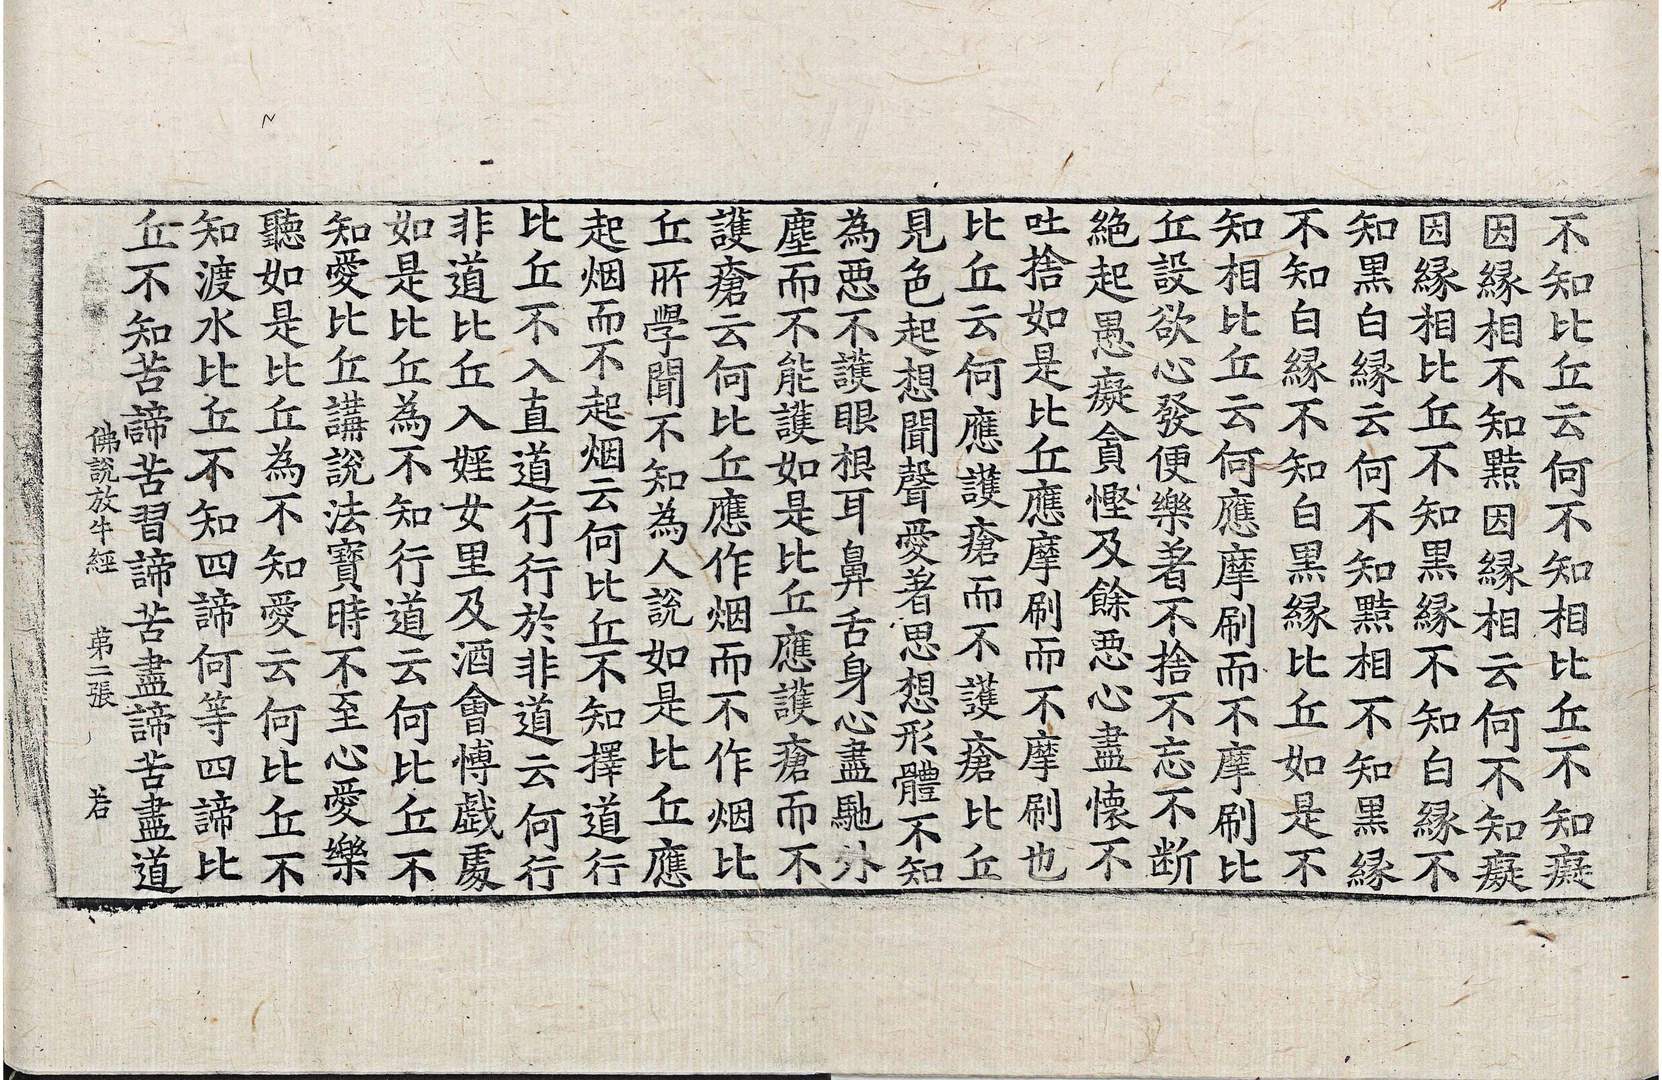 不知比丘云何不知相比丘不知癡
因縁相不知黠因縁相云何不知癡
因縁相比丘不知黒縁不知白縁不
知黒白縁云何不知黠相不知黒縁
不知白縁不知白黒縁比丘如是不
知相比丘云何應摩刷而不摩刷比
丘設欲心發便樂著不捨不忘不断
絶起愚癡貪慳及餘惡心盡懷不
吐捨如是比丘應摩刷而不摩刷也
比丘云何應護瘡而不護瘡比丘
見色起想聞聲愛著思想形體不知
為惡不護眼根耳鼻舌身心盡馳外
塵而不能護如是比丘應護瘡而不
護瘡云何比丘應作烟而不作烟比
丘所學聞不知為人說如是比丘應
起烟而不起烟云何比丘不知擇道行
比丘不入直道行行於非道云何行
非道比丘入婬女里及酒會愽戯處
如是比丘為不知行道云何比丘不
知愛比丘講說法寶時不至心愛樂
聽如是比丘為不知愛云何比丘不
知渡水比丘不知四諦何等四諦比
丘不知苦諦苦習諦苦盡諦苦盡道
佛說放牛經 第二張 若